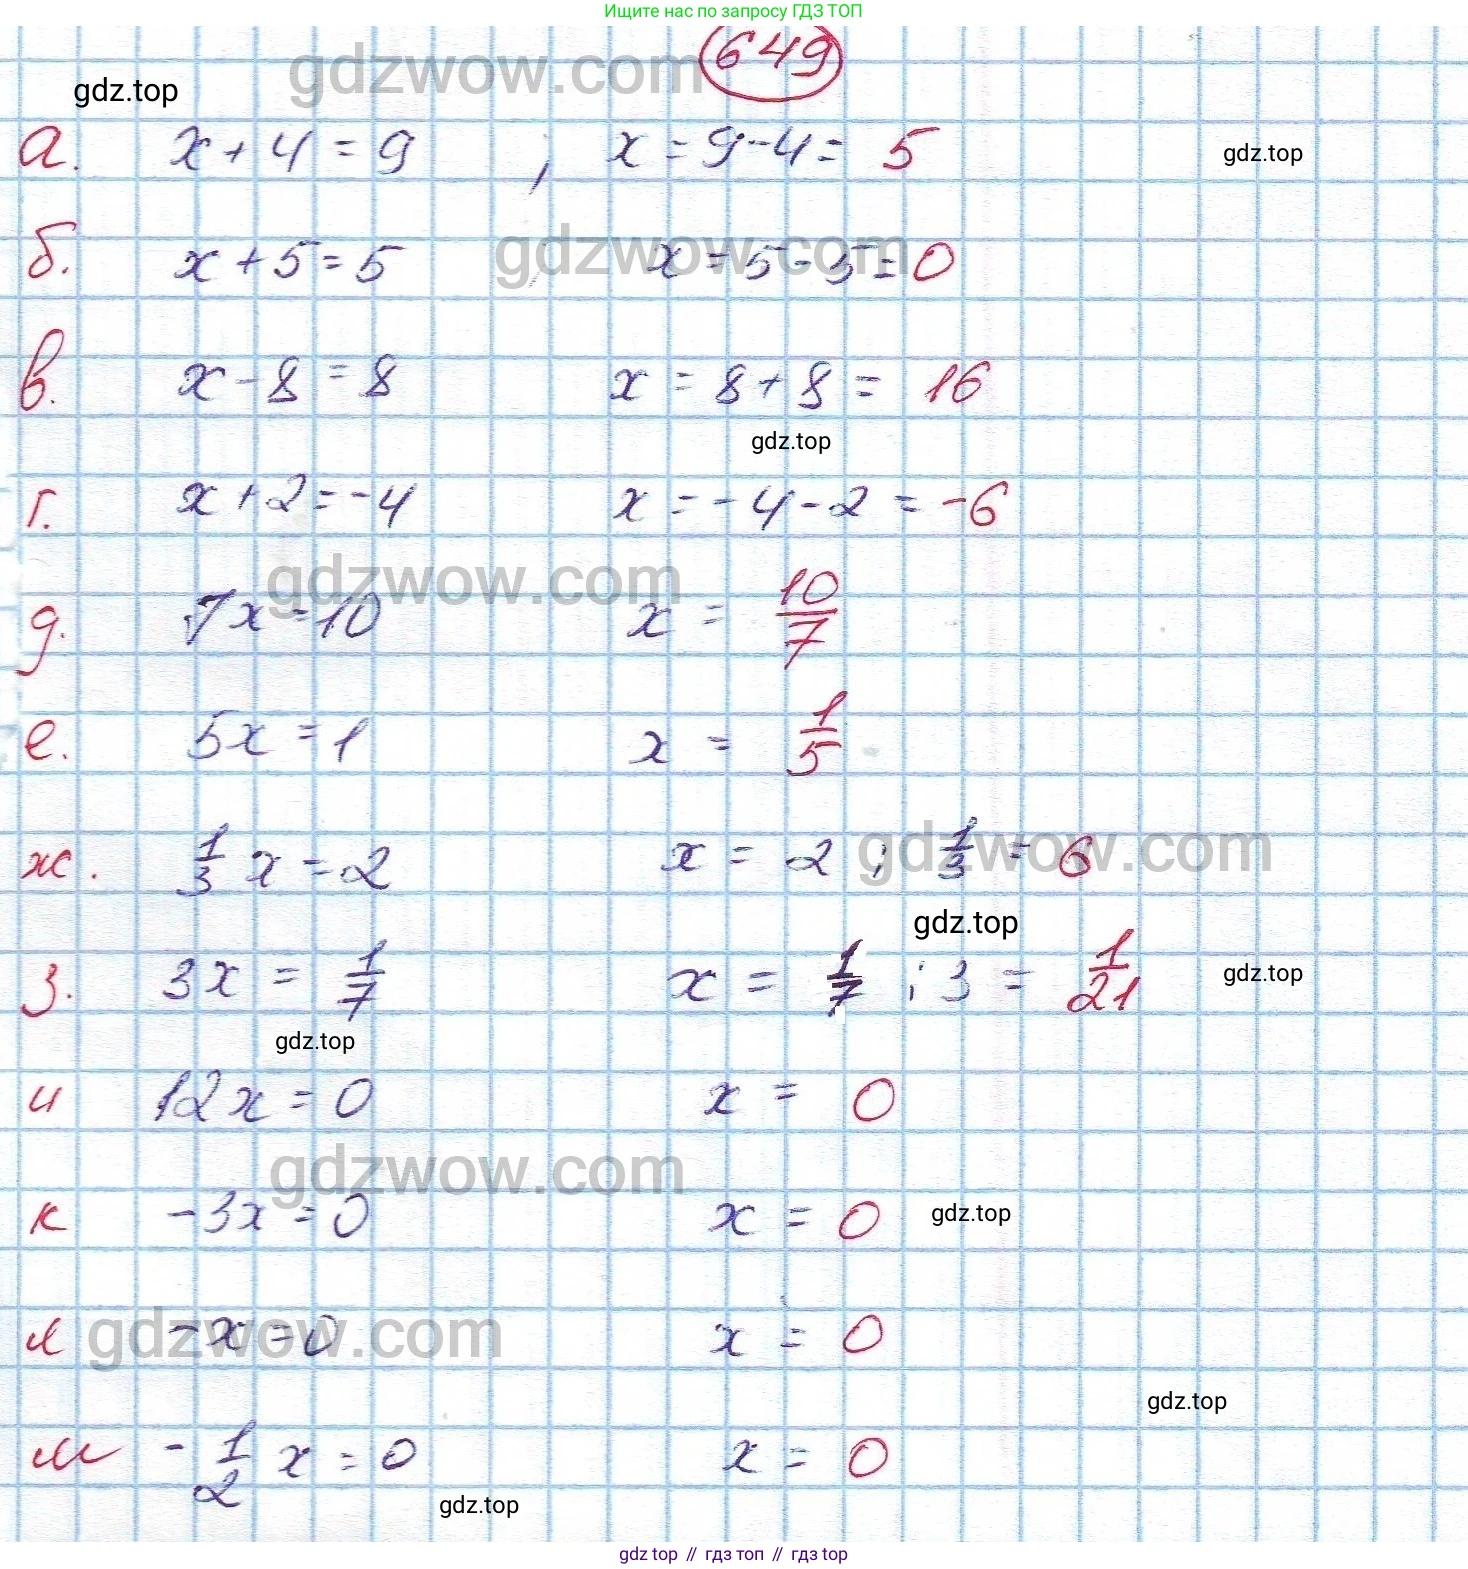 Ищите нас по запросу ГДЗ ТОП
649
gdzwow.com
gdz.top
а. x + 4 = 9 , x = 9 - 4 = 5
gdz.top
gdzwow.com
б. x + 5 = 5 x = 5 - 5 = 0
в. x - 8 = 8 x = 8 + 8 = 16
gdz.top
г. x + 2 = -4 x = -4 - 2 = -6
gdzwow.com
д. 7x = 10 x = 10/7
е. 5x = 1 x = 1/5
gdzwow.com
ж. 1/3 x = 2 x = 2 : 1/3 = 6
gdz.top
з. 3x = 1/7 x = 1/7 : 3 = 1/21
gdz.top
gdz.top
и 12x = 0 x = 0
gdzwow.com
к -3x = 0 x = 0
gdz.top
gdzwow.com
л -x = 0 x = 0
gdz.top
м - 1/2 x = 0 x = 0
gdz.top
gdz top // гдз топ // гдз top